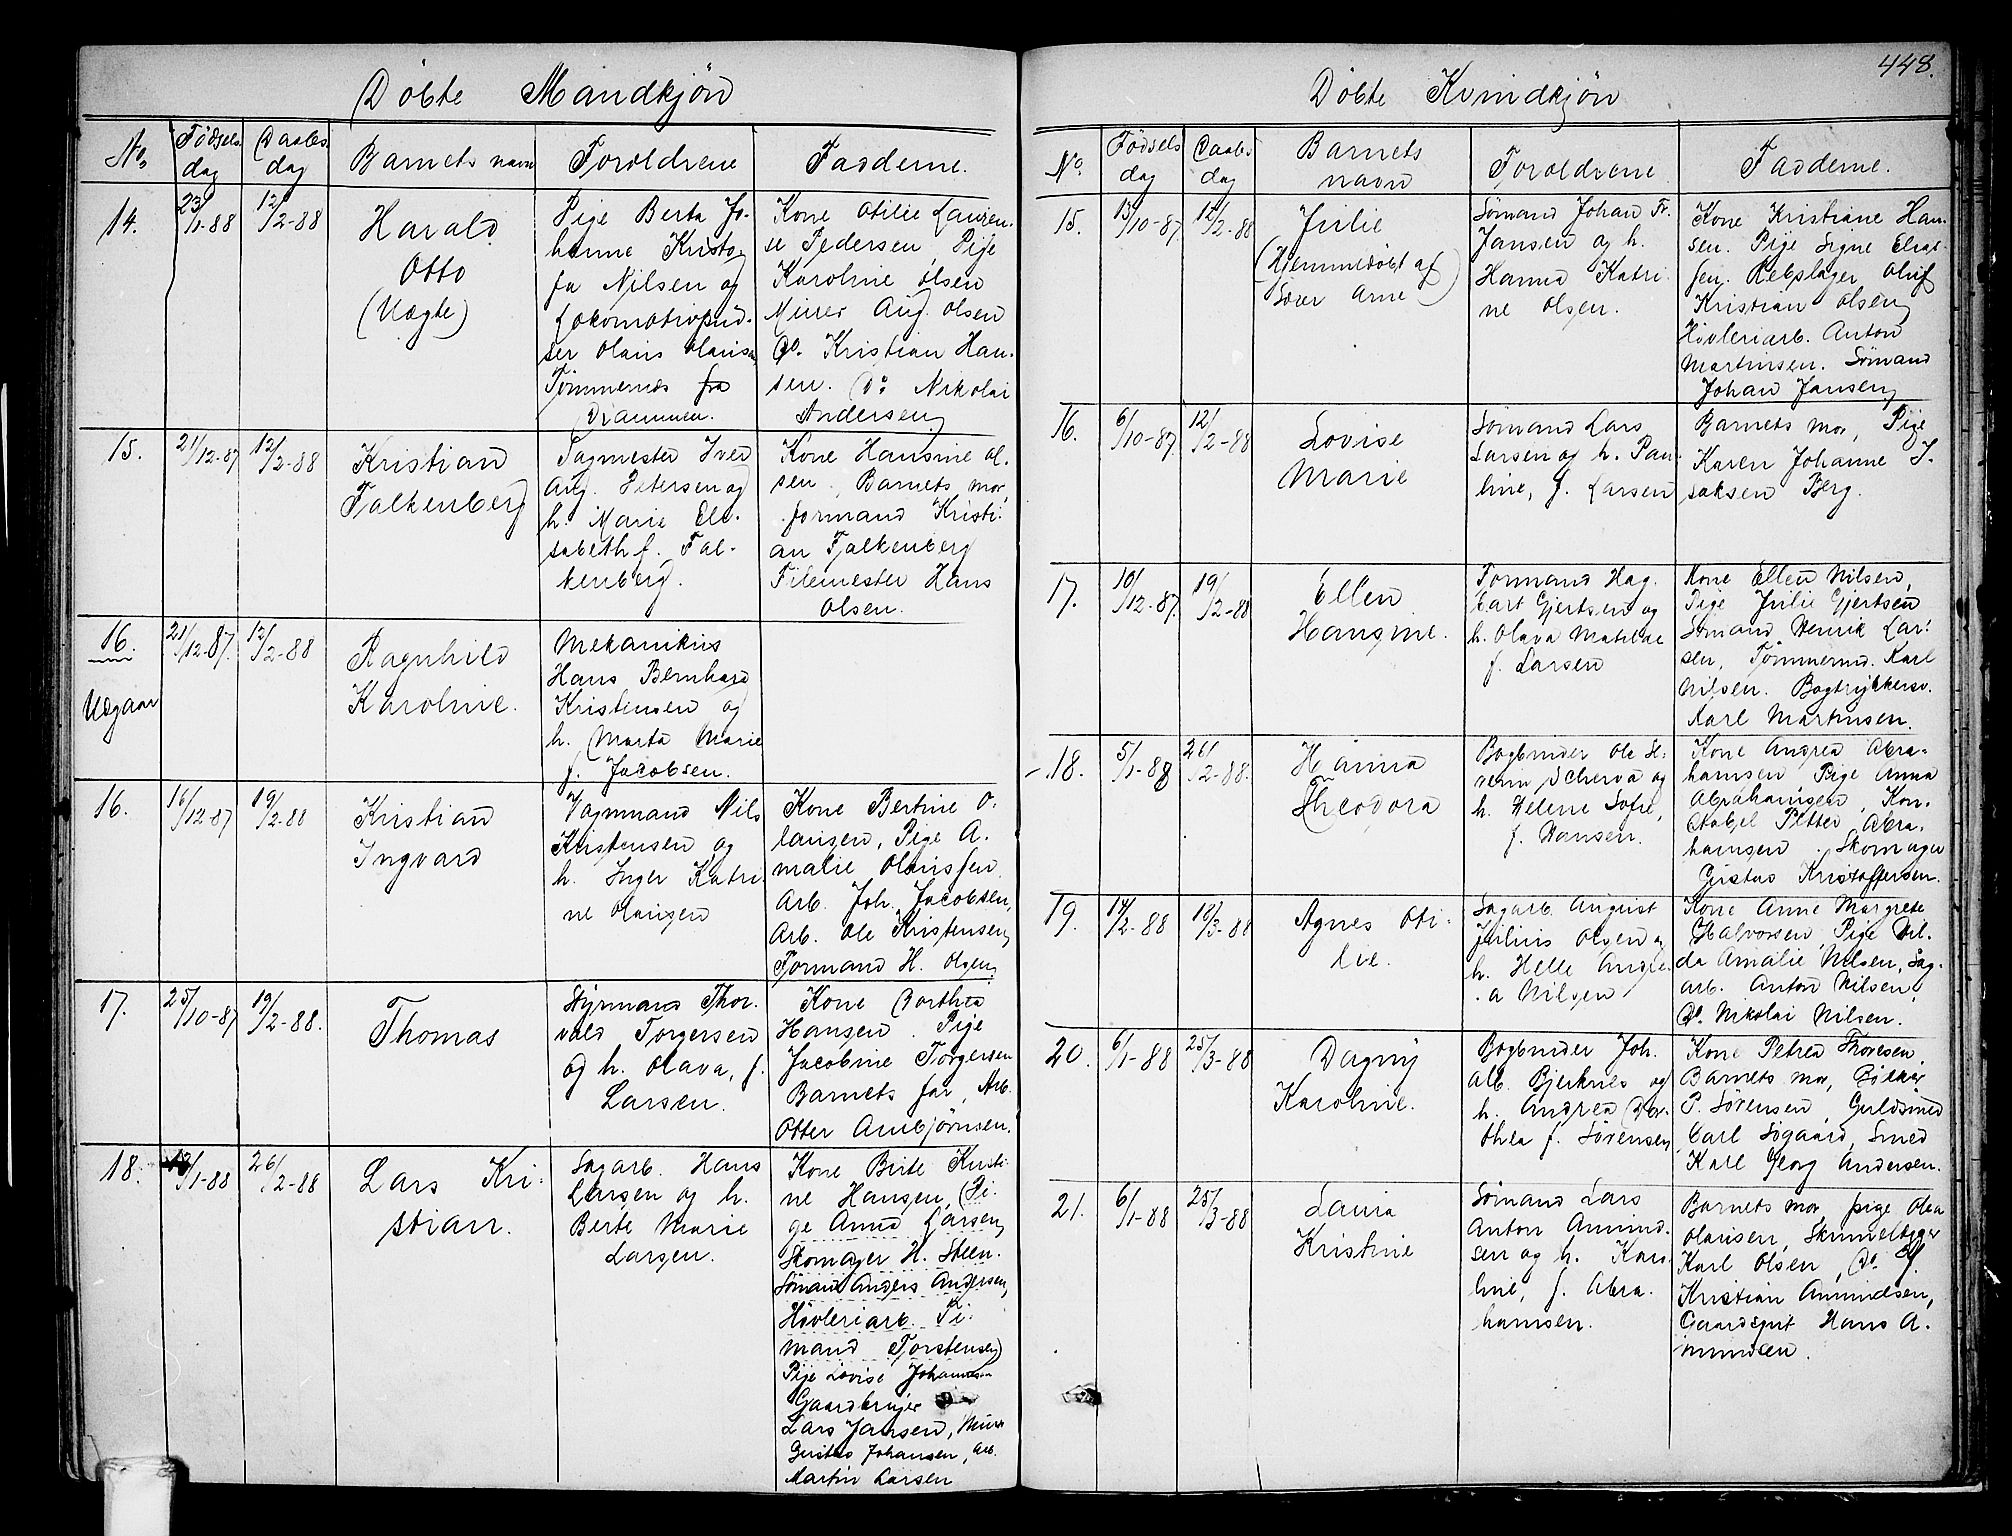 448.
Döbte Mandkjön
No. Födsels dag Daabs dag Barnets navn Foroldrene Fadderne.
14. 23/1-88 12/2-88
Harald
Otto
(Uægte)
Pige Berta Jo-
hanne Kristo-
fa Nilsen og
Lokomotivpud-
ser Olaus Olausen
Tømmernes fra
Drammen.
Kone Otilie Lauren-
se Pedersen, Pige
Karoline Olsen
Murer Aug. Olsen
Do. Kristian Han-
sen. Do Nikolai
Andersen
15. 21/12-87 12/2-88
Kristian
Falkenberg
Sagmester Iver
Aug. Petersen og
h. Marie Eli-
sabeth f. Fal-
kenberg.
Kone Hansine Ol-
sen, Barnets mor,
Formand Kristi-
an Falkenberg
Filemester Hans
Olsen.
16. 21/12-87. 12/2-88
Udgaar
Ragnhild
Karoline.
Mekanikus
Hans Bernhard
Kristensen og
h. Marta Marie
f. Jacobsen.
16. 16/12-87 19/2-88
Kristian
Ingvard
Vognmand Nils
Kristensen og
h. Inger Katri-
ne Olausen
Kone Bertine O-
lausen, Pige A-
malie Olaussen
Arb. Joh. Jacobsen,
Arb. Ole Kristensen,
Formand H. Olsen
17. 25/10-87 19/2-88.
Thomas
Styrmand Thor-
vald Torgersen
og h. Olava, f.
Larsen.
Kone Dorthea
Hansen. Pige
Jacobine Torgersen
Barnets far, Arb.
Otter Ambjörnsen.
18. /1-88 26/2-88
Lars Kri-
stian.
Sagarb. Hans
Larsen og h.
Berte Marie
Larsen.
Kone Berte Kristi-
ne Hansen, Pi-
ge Anna Larsen,
Skomager H. Steen.
Sömand Anders Andersen,
Hövleriarb. Ti-
mand Torstensen
Pige Lovise Johannesen
Gaardbruger
Lars Jansen, Murer
Gustav Johansen, Arb.
Martin Larsen
Döbte Kvindkjön
No. Födsels dag Daabs dag Barnets navn Foroldrene Fadderne.
15. 13/10-87. 12/2-88
Julie
(Hjemmedöbt af
Sven Arne)
Sömand Johan Fr.
Jansen og h.
Hanna Katri-
ne Olsen.
Kone Kristiane Han-
sen. Pige Signe Elias-
sen. Rebslager Oluf
Kristian Olsen
Hövleriarb. Anton
Martinsen. Sömand
Johan Jansen
16. 6/10-87. 12/2-88
Lovise
Marie
Sömand Lars
Larsen og h. Pau-
line, f. Larsen
Barnets mor, Pige
Karen Johanne I-
saksen Berg.
17. 10/12-87. 19/2-88
Ellen
Hansine.
Formand Hag-
bart Gjertsen og
h. Olava Matilde
f. Larsen
Kone Ellen Nilsen,
Pige Julie Gjertsen
Sömand Henrik Lar-
sen, Tömmermd. Karl
Nilsen. Bogtrykkersv.
Karl Martinsen.
18. 5/1-88 26/2-88.
Hanna
Theodora
Bogbinder Ole Se-
verin Scherva og
h. Helene Sofie,
f. Hansen.
Kone Andrea Abra-
hamsen Pige Anna
Abrahamsen, Kon-
stabel Petter Abra-
hamsen. Skomager
Gustav Kristoffersen.
19. 14/2-88 18/3-88
Agnes Oti-
lie.
Sagarb. August
Julius Olsen og
h. Helle Andre-
a Nilsen
Kone Anne Margrete
Halvorsen, Pige Hil-
da Amalie Nilsen, Sag-
arb. Anton Nilsen,
Do. Nikolai Nilsen.
20. 6/1-88 25/3-88
Dagny
Karoline.
Bogbinder Joh.
Alb. Bjerknes og
h. Andrea Dor-
thea f. Sörensen
Kone Petrea Thoresen,
Barnets mor, Bödker
P. Sörensen, Guldsmed
Carl Sögaard, Smed
Karl Georg Andersen.
21. 6/1-88 25/3-88
Laura
Kristine
Sömand Lars
Anton Amund-
sen og h. Karo-
line, f. Abra-
hamsen.
Barnets mor, pige Olea
Olausen, Skindbygger
Karl Olsen, Do.
Kristian Amundsen,
Gaardsgut Hans A-
mundsen.